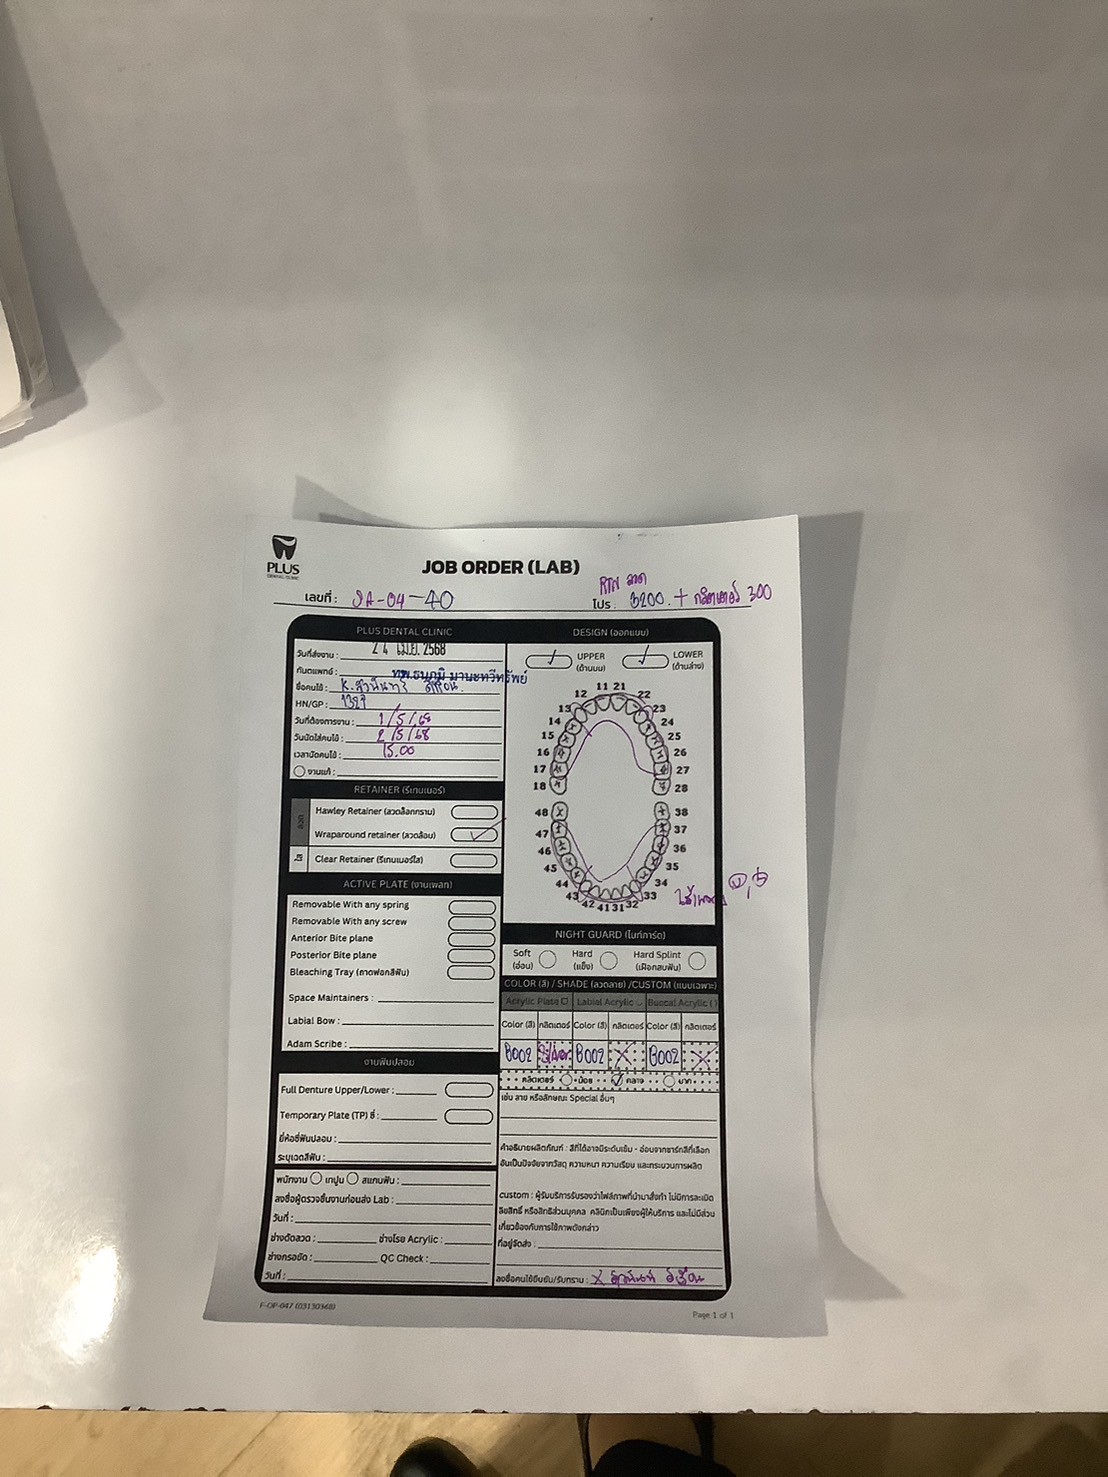 PLUS
DENTAL CLINIC
JOB ORDER (LAB)
เลขที่ : SA-04-40
RTN ลวด
โปร : 3200. + กลิตเตอร์ 300
PLUS DENTAL CLINIC
วันที่ส่งงาน : 24 เม.ย. 2568
ทันตแพทย์ : ทพ.ธนภูมิ มานะทวีทรัพย์
ชื่อคนไข้ : K.
HN/GP : 1329
วันที่ต้องการงาน : 1/5/68
วันนัดใส่คนไข้ : 2/5/68
เวลานัดคนไข้ : 15.00
งานแก้ :
RETAINER (รีเทนเนอร์)
ลวด
Hawley Retainer (ลวดล็อกกราม)
Wraparound retainer (ลวดล้อม)
ใส
Clear Retainer (รีเทนเนอร์ใส)
ACTIVE PLATE (งานเพลท)
Removable With any spring
Removable With any screw
Anterior Bite plane
Posterior Bite plane
Bleaching Tray (ถาดฟอกสีฟัน)
Space Maintainers :
Labial Bow :
Adam Scribe :
งานฟันปลอม
Full Denture Upper/Lower :
Temporary Plate (TP) ซี่ :
ยี่ห้อซี่ฟันปลอม :
ระบุเฉดสีฟัน :
พนักงาน เทปูน สแกนฟัน :
ลงชื่อผู้ตรวจชิ้นงานก่อนส่ง Lab :
วันที่ :
ช่างดัดลวด : ช่างโรย Acrylic :
ช่างกรอขัด : QC Check :
วันที่ :
DESIGN (ออกแบบ)
UPPER
(ด้านบน)
LOWER
(ด้านล่าง)
11 21
12 22
13 23
14 24
15 25
16 26
17 27
18 28
48 38
47 37
46 36
45 35
44 34
43 33
42 41 31 32
NIGHT GUARD (ไนท์การ์ด)
Soft
(อ่อน)
Hard
(แข็ง)
Hard Splint
(เฝือกสบฟัน)
COLOR (สี) / SHADE (ลวดลาย) /CUSTOM (แบบเฉพาะ)
Acrylic Plate Labial Acrylic Buccal Acrylic ( )
Color (สี) กลิตเตอร์ Color (สี) กลิตเตอร์ Color (สี) กลิตเตอร์
B002 Silver B002 X B002 X
กลิตเตอร์ น้อย กลาง มาก
เช่น ลาย หรือลักษณะ Special อื่นๆ
คำอธิบายผลิตภัณฑ์ : สีที่ได้อาจมีระดับเข้ม - อ่อนจากชาร์ทสีที่เลือก
อันเป็นปัจจัยจากวัสดุ ความหนา ความเรียบ และกระบวนการผลิต
custom : ผู้รับบริการรับรองว่าไฟล์ภาพที่นำมาสั่งทำ ไม่มีการละเมิด
ลิขสิทธิ์ หรือสิทธิส่วนบุคคล คลินิกเป็นเพียงผู้ให้บริการ และไม่มีส่วน
เกี่ยวข้องกับการใช้ภาพดังกล่าว
ที่อยู่จัดส่ง :
ลงชื่อคนไข้ยืนยัน/รับทราบ : X
F-OP-047 (03130368)
Page 1 of 1